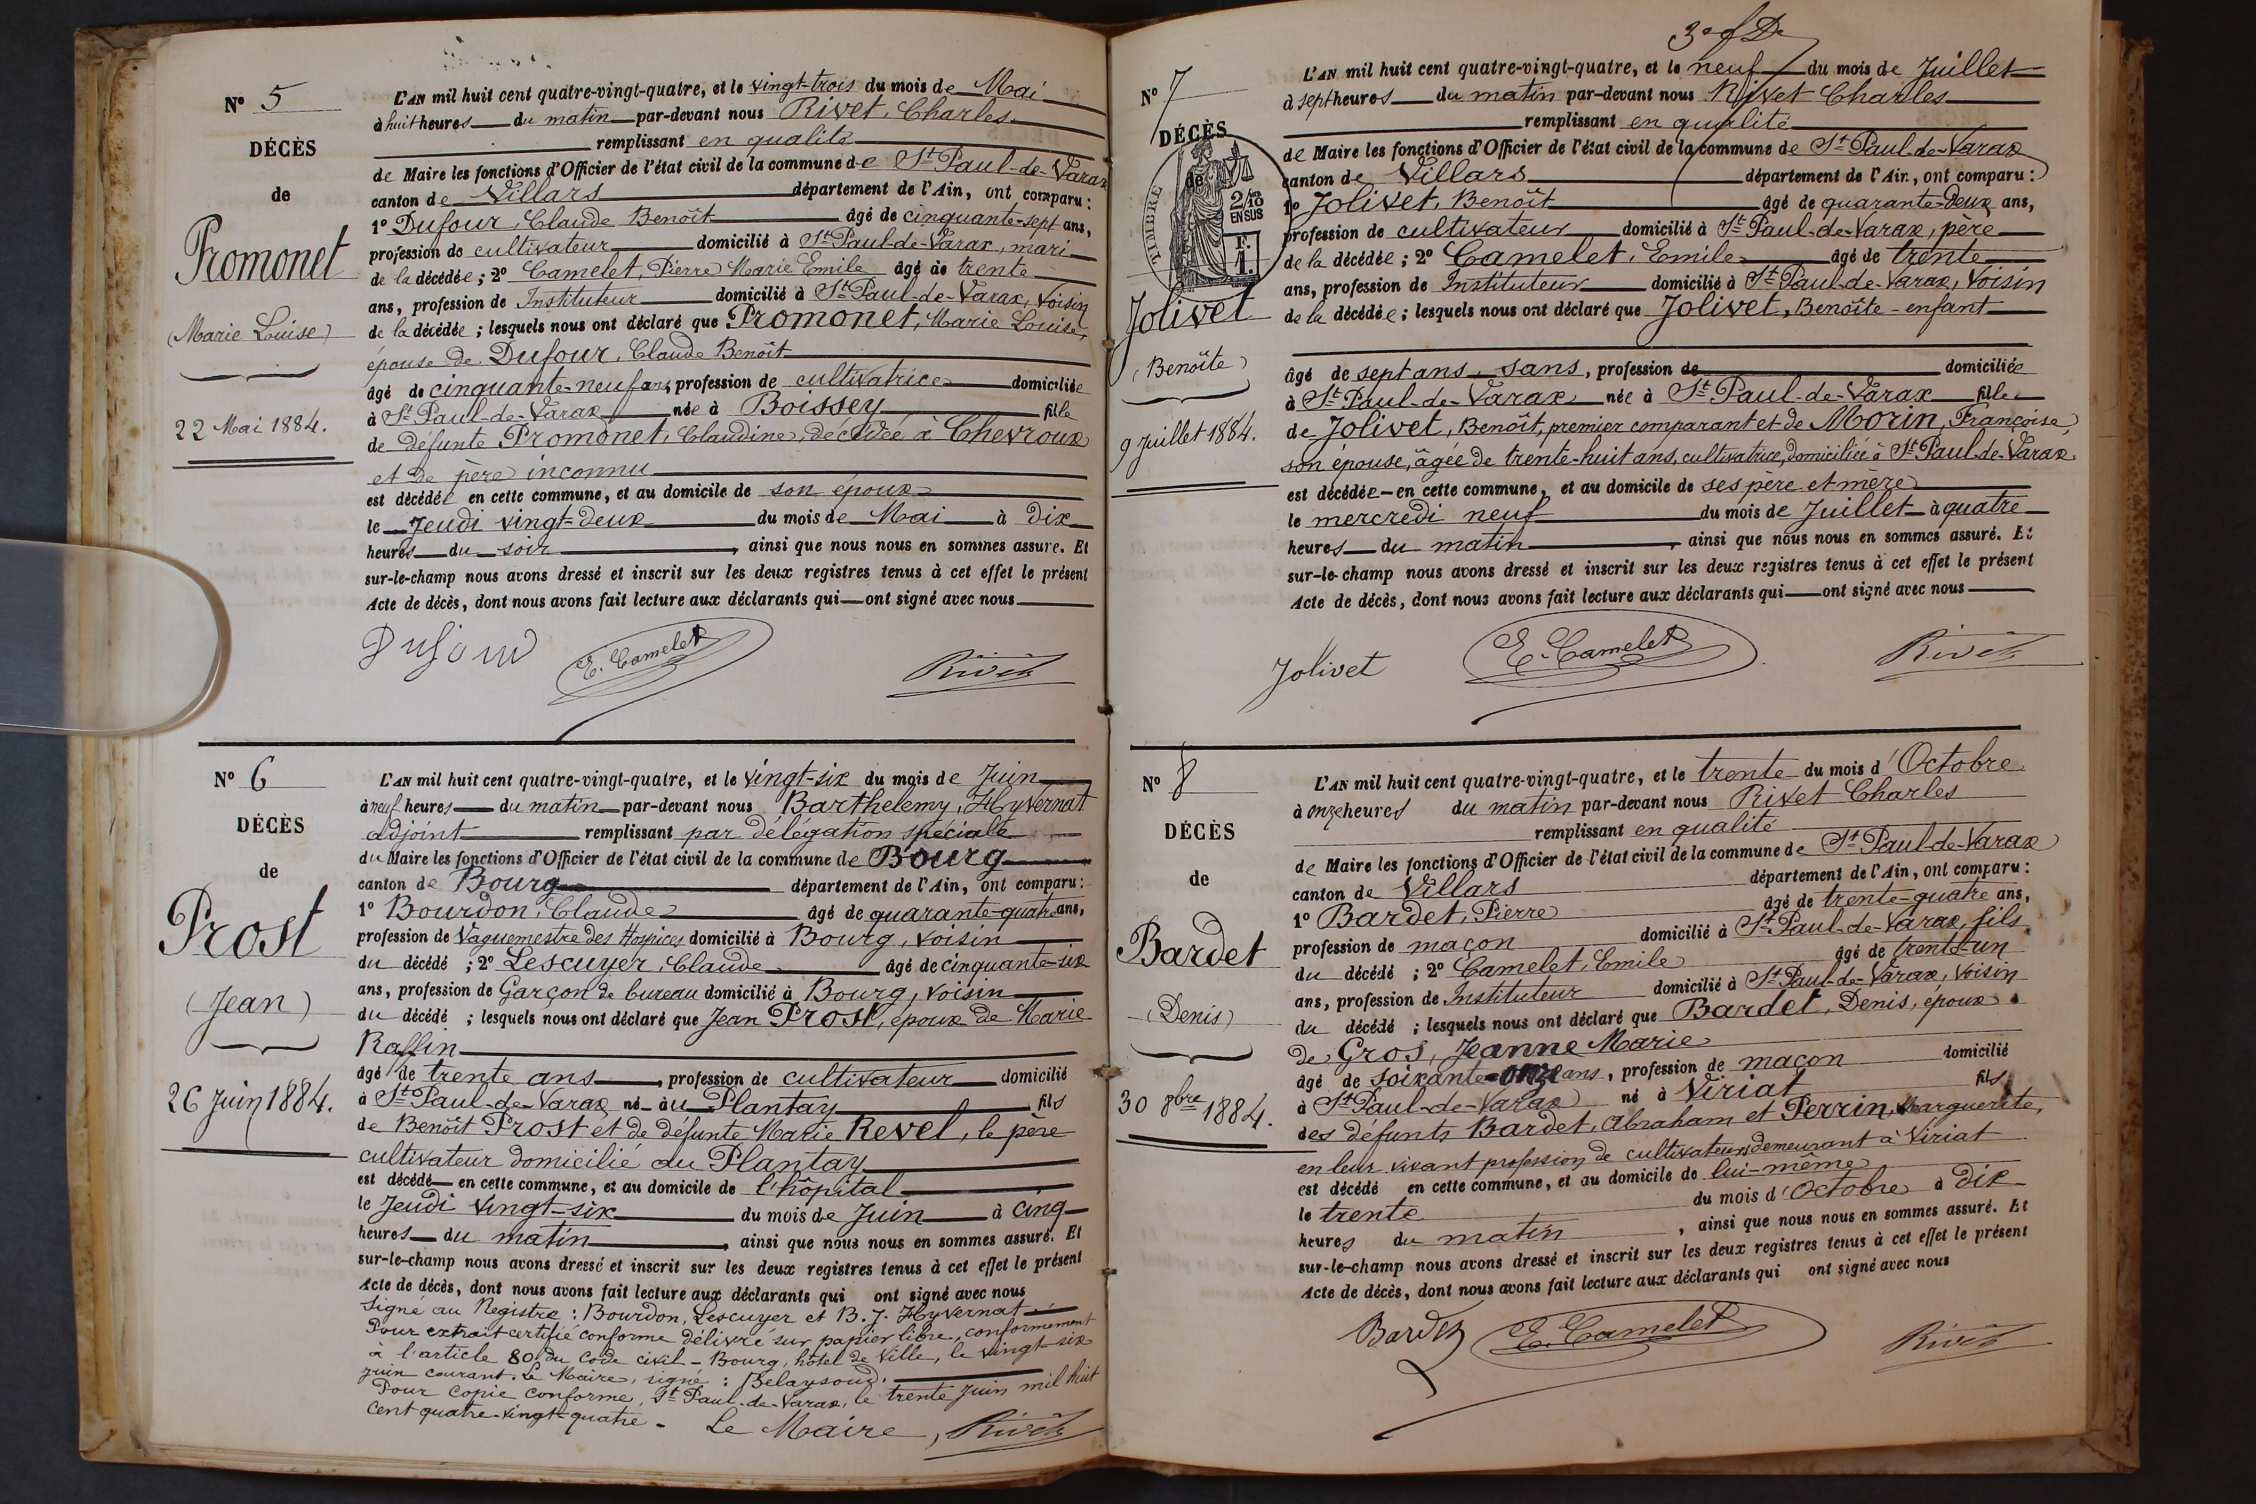 N° 5
DÉCÈS
de
Promonet
(Marie Louise)
22 Mai 1884.
L'AN mil huit cent quatre-vingt-quatre, et le vingt-trois du mois de Mai
à huit heures du matin par-devant nous Rivet, Charles
remplissant en qualité
de Maire les fonctions d'Officier de l'état civil de la commune de St Paul-de-Varax
canton de Villars département de l'Ain, ont comparu :
1° Dufour, Claude Benoît âgé de cinquante-sept ans,
profession de cultivateur domicilié à St Paul-de-Varax, mari
de la décédée ; 2° Camelet, Pierre Marie Emile âgé de trente
ans, profession de Instituteur domicilié à St Paul-de-Varax, voisin
de la décédée ; lesquels nous ont déclaré que Promonet, Marie Louise,
épouse de Dufour, Claude Benoît
âgé de cinquante-neuf ans, profession de cultivatrice domiciliée
à St Paul-de-Varax née à Boissey fille
de défunte Promonet, Claudine, décédée à Chevroux
et de père inconnu
est décédée en cette commune, et au domicile de son époux
le Jeudi vingt-deux du mois de Mai à dix
heures du soir, ainsi que nous nous en sommes assuré. Et
sur-le-champ nous avons dressé et inscrit sur les deux registres tenus à cet effet le présent
Acte de décès, dont nous avons fait lecture aux déclarants qui ont signé avec nous
Dufour E. Camelet Rivet
N° 6
DÉCÈS
de
Prost
(Jean)
26 Juin 1884.
L'AN mil huit cent quatre-vingt-quatre, et le vingt-six du mois de Juin
à neuf heures du matin par-devant nous Barthelemy, Hyvernat
adjoint remplissant par délégation spéciale
du Maire les fonctions d'Officier de l'état civil de la commune de Bourg
canton de Bourg département de l'Ain, ont comparu :
1° Bourdon, Claude âgé de quarante-quatre ans,
profession de Vaguemestre des Hospices domicilié à Bourg, voisin
du décédé ; 2° Lescuyer, Claude âgé de cinquante-six
ans, profession de Garçon de bureau domicilié à Bourg, voisin
du décédé ; lesquels nous ont déclaré que Jean Prost, époux de Marie
Raffin
âgé de trente ans, profession de cultivateur domicilié
à St Paul-de-Varax né au Plantay fils
de Benoît Prost et de défunte Marie Revel, le père
cultivateur domicilié au Plantay
est décédé en cette commune, et au domicile de l'hôpital
le Jeudi vingt-six du mois de Juin à cinq
heures du matin, ainsi que nous nous en sommes assuré. Et
sur-le-champ nous avons dressé et inscrit sur les deux registres tenus à cet effet le présent
Acte de décès, dont nous avons fait lecture aux déclarants qui ont signé avec nous
Signé au Registre : Bourdon, Lescuyer et B. J. Hyvernat
Pour extrait certifié conforme délivré sur papier libre, conformément
à l'article 80 du code civil - Bourg, hôtel de Ville, le vingt-six
juin courant. Le Maire, signé : Belaysoud.
Pour copie conforme, St Paul-de-Varax, le trente Juin mil huit
cent quatre-vingt-quatre - Le Maire, Rivet
N° 7
DÉCÈS
de
TIMBRE
2/10
EN SUS
F.
1.
Jolivet
(Benoîte)
9 Juillet 1884.
L'AN mil huit cent quatre-vingt-quatre, et le neuf du mois de Juillet
à sept heures du matin par-devant nous Rivet Charles
remplissant en qualité
de Maire les fonctions d'Officier de l'état civil de la commune de St Paul-de-Varax
canton de Villars département de l'Ain, ont comparu :
1° Jolivet, Benoît âgé de quarante-deux ans,
profession de cultivateur domicilié à St Paul-de-Varax, père
de la décédée ; 2° Camelet, Emile âgé de trente
ans, profession de Instituteur domicilié à St Paul-de-Varax, voisin
de la décédée ; lesquels nous ont déclaré que Jolivet, Benoîte - enfant
âgé de sept ans, sans, profession de domiciliée
à St Paul-de-Varax née à St Paul-de-Varax fille
de Jolivet, Benoît, premier comparant et de Morin, Françoise,
son épouse, âgée de trente-huit ans, cultivatrice, domiciliée à St Paul-de-Varax.
est décédée en cette commune, et au domicile de ses père et mère
le mercredi neuf du mois de Juillet à quatre
heures du matin, ainsi que nous nous en sommes assuré. Et
sur-le-champ nous avons dressé et inscrit sur les deux registres tenus à cet effet le présent
Acte de décès, dont nous avons fait lecture aux déclarants qui ont signé avec nous
Jolivet E. Camelet Rivet
N° 8
DÉCÈS
de
Bardet
(Denis)
30 8bre 1884.
L'AN mil huit cent quatre-vingt-quatre, et le trente du mois d'Octobre
à onze heures du matin par-devant nous Rivet Charles
remplissant en qualité
de Maire les fonctions d'Officier de l'état civil de la commune de St Paul-de-Varax
canton de Villars département de l'Ain, ont comparu :
1° Bardet, Pierre âgé de trente-quatre ans,
profession de maçon domicilié à St Paul-de-Varax, fils
du décédé ; 2° Camelet, Emile âgé de trente-un
ans, profession de Instituteur domicilié à St Paul-de-Varax, voisin
du décédé ; lesquels nous ont déclaré que Bardet, Denis, époux
de Gros, Jeanne Marie
âgé de soixante-onze ans, profession de maçon domicilié
à St Paul-de-Varax né à Viriat fils
des défunts Bardet, Abraham et Perrin, Marguerite,
en leur vivant profession de cultivateurs demeurant à Viriat
est décédé en cette commune, et au domicile de lui-même
le trente du mois d'Octobre à dix
heures du matin, ainsi que nous nous en sommes assuré. Et
sur-le-champ nous avons dressé et inscrit sur les deux registres tenus à cet effet le présent
Acte de décès, dont nous avons fait lecture aux déclarants qui ont signé avec nous
Bardet E. Camelet Rivet